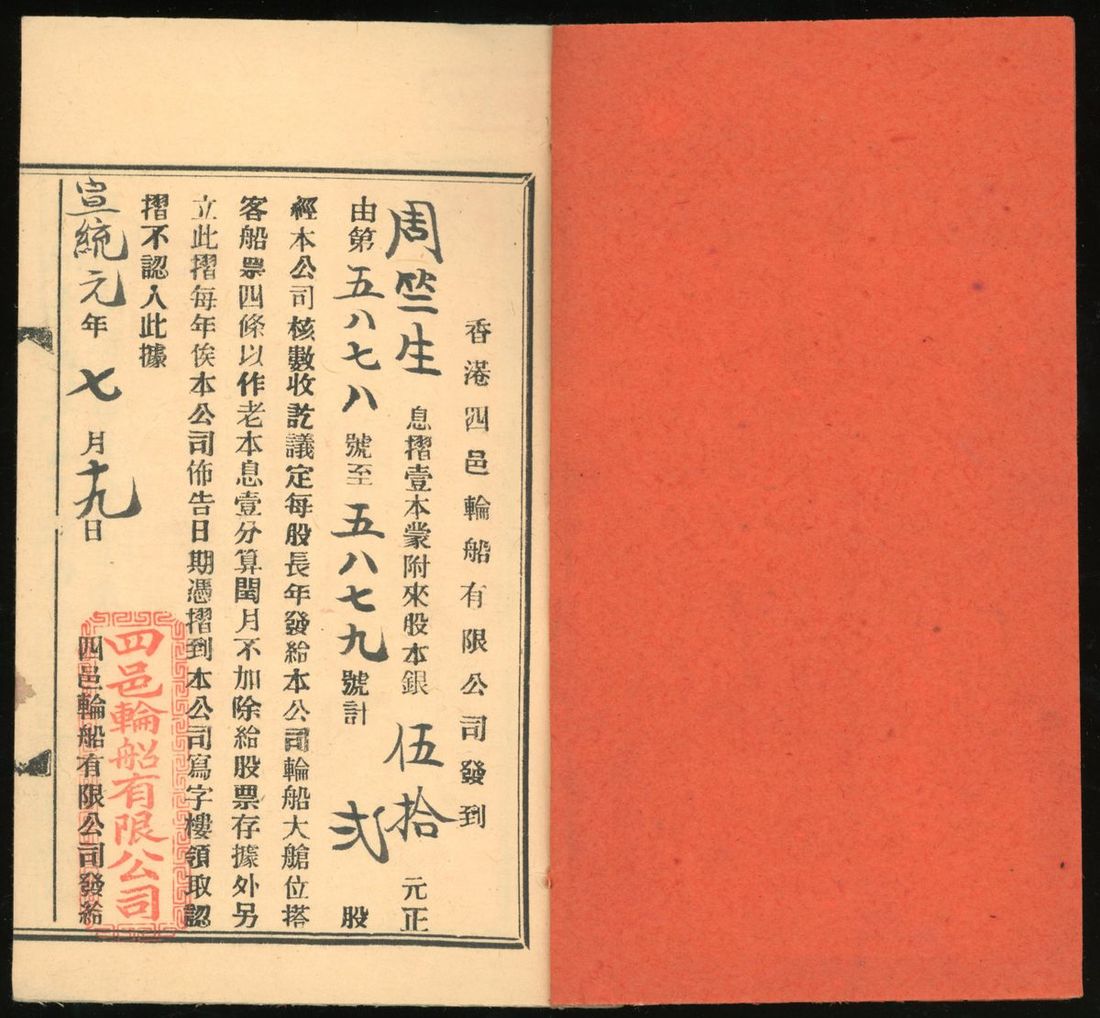 香港四邑輪船有限公司發到
周竺生息摺壹本蒙附來股本銀伍拾元正
由第五八七八號至五八七九號計弍股
經本公司核數收訖議定每股長年發給本公司輪船大艙位搭
客船票四條以作老本息壹分算閏月不加除給股票存據外另
立此摺每年俟本公司佈告日期憑摺到本公司寫字樓領取認
摺不認人此據
宣統元年七月十九日
四邑輪船有限公司發給
四邑輪船有限公司